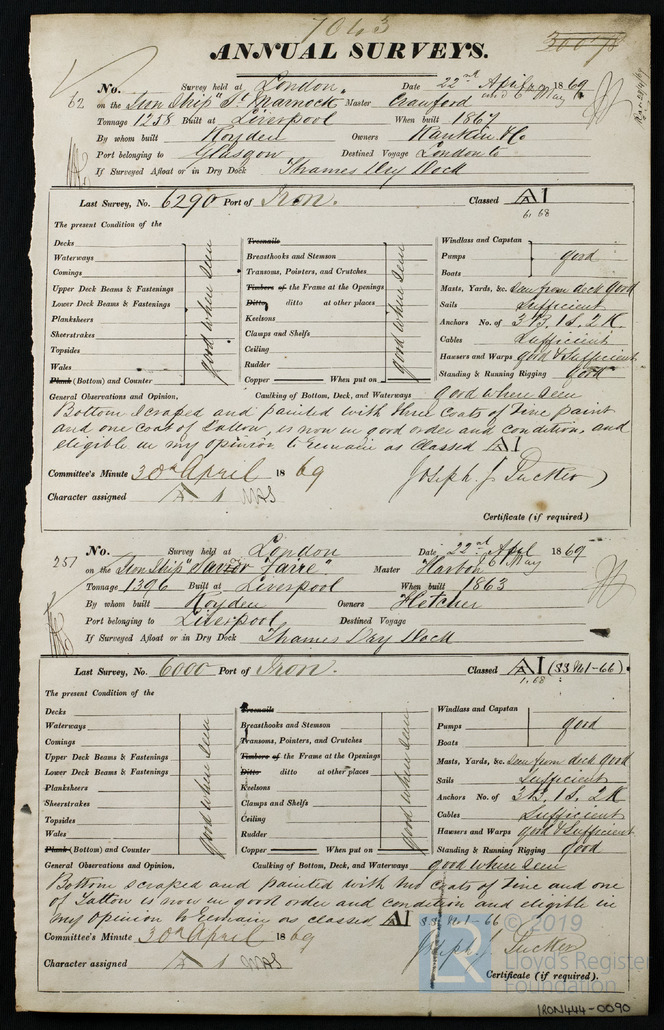 7043
ANNUAL SURVEYS.
No. 62 Survey held at London. Date 22nd April 1869
and 6 May
on the Iron Ship "St Marnock" Master Crawford
Tonnage 1258 Built at Liverpool When built 1867
By whom built Royden Owners Rankin & Co.
Port belonging to Glasgow Destined Voyage London to
If Surveyed Afloat or in Dry Dock Thames Dry Dock
Last Survey, No. 6290 Port of Iron. Classed AI
6, 68
The present Condition of the
Decks
Waterways
Comings
Upper Deck Beams & Fastenings
Lower Deck Beams & Fastenings
Planksheers
Sheerstrakes
Topsides
Wales
Plank (Bottom) and Counter
good when seen
Treenails
Breasthooks and Stemson
Transoms, Pointers, and Crutches
Timbers of the Frame at the Openings
Ditto ditto at other places
Keelsons
Clamps and Shelfs
Ceiling
Rudder
Copper When put on
good when seen
Windlass and Capstan
Pumps good
Boats
Masts, Yards, &c. seen from deck good
Sails Sufficient
Anchors No. of 3 B, 1 S, 2 K.
Cables Sufficient
Hawsers and Warps good & Sufficient
Standing & Running Rigging good
General Observations and Opinion, Caulking of Bottom, Deck, and Waterways good when seen
Bottom scraped and painted with three coats of Zinc paint
and one coat of Tallow, is now in good order and condition, and
eligible in my opinion to remain as Classed AI
Committee's Minute 30th April 1869 Joseph J Tucker
Character assigned A 1
Certificate (if required)
No. 251 Survey held at London Date 22nd April 1869
6 May
on the Iron Ship Master Harbon
Tonnage 1396 Built at Liverpool When built 1863
By whom built Royden Owners Fletcher
Port belonging to Liverpool Destined Voyage
If Surveyed Afloat or in Dry Dock Thames Dry Dock
Last Survey, No. 6000 Port of Iron. Classed AI (SS No1-66)
1, 68
The present Condition of the
Decks
Waterways
Comings
Upper Deck Beams & Fastenings
Lower Deck Beams & Fastenings
Planksheers
Sheerstrakes
Topsides
Wales
Plank (Bottom) and Counter
good when seen
Treenails
Breasthooks and Stemson
Transoms, Pointers, and Crutches
Timbers of the Frame at the Openings
Ditto ditto at other places
Keelsons
Clamps and Shelfs
Ceiling
Rudder
Copper When put on
good when seen
Windlass and Capstan
Pumps good
Boats
Masts, Yards, &c. seen from deck good
Sails Sufficient
Anchors No. of 3 B, 1 S, 2 K
Cables Sufficient
Hawsers and Warps good & Sufficient
Standing & Running Rigging good
General Observations and Opinion, Caulking of Bottom, Deck, and Waterways good when seen
Bottom scraped and painted with two coats of Zinc and one
of Tallow is now in good order and condition and eligible in
my Opinion to remain as classed AI SS No1-66
Committee's Minute 30th April 1869 Joseph J Tucker
Character assigned A 1
Certificate (if required).
© 2019
Lloyd's Register
Foundation
IRON444-0090